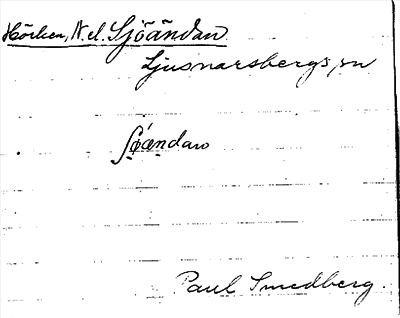 Hörken, N. d. Sjöändan
Ljusnarsbergs sn
Sjöändaw
Paul Smedberg.